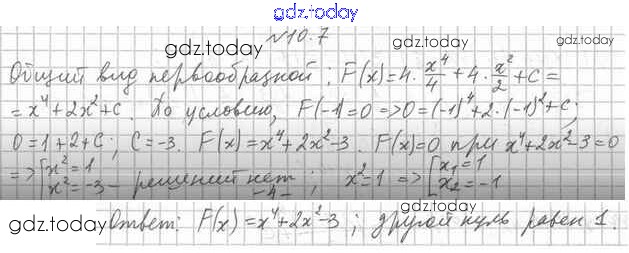 gdz.today
№10.7
gdz.today
gdz.today
Общий вид первообразной: F(x)=4·x⁴/4+4·x²/2+C=
=x⁴+2x²+C. По условию, F(-1)=0=>0=(-1)⁴+2·(-1)²+C;
0=1+2+C; C=-3. F(x)=x⁴+2x²-3. F(x)=0 при x⁴+2x²-3=0
=>[x²=1
x²=-3 – решений нет; x²=1 =>[x₁=1
x₂=-1
-4-
gdz.today
gdz.today
gdz.today
Ответ: F(x)=x⁴+2x²-3; другой нуль равен 1.